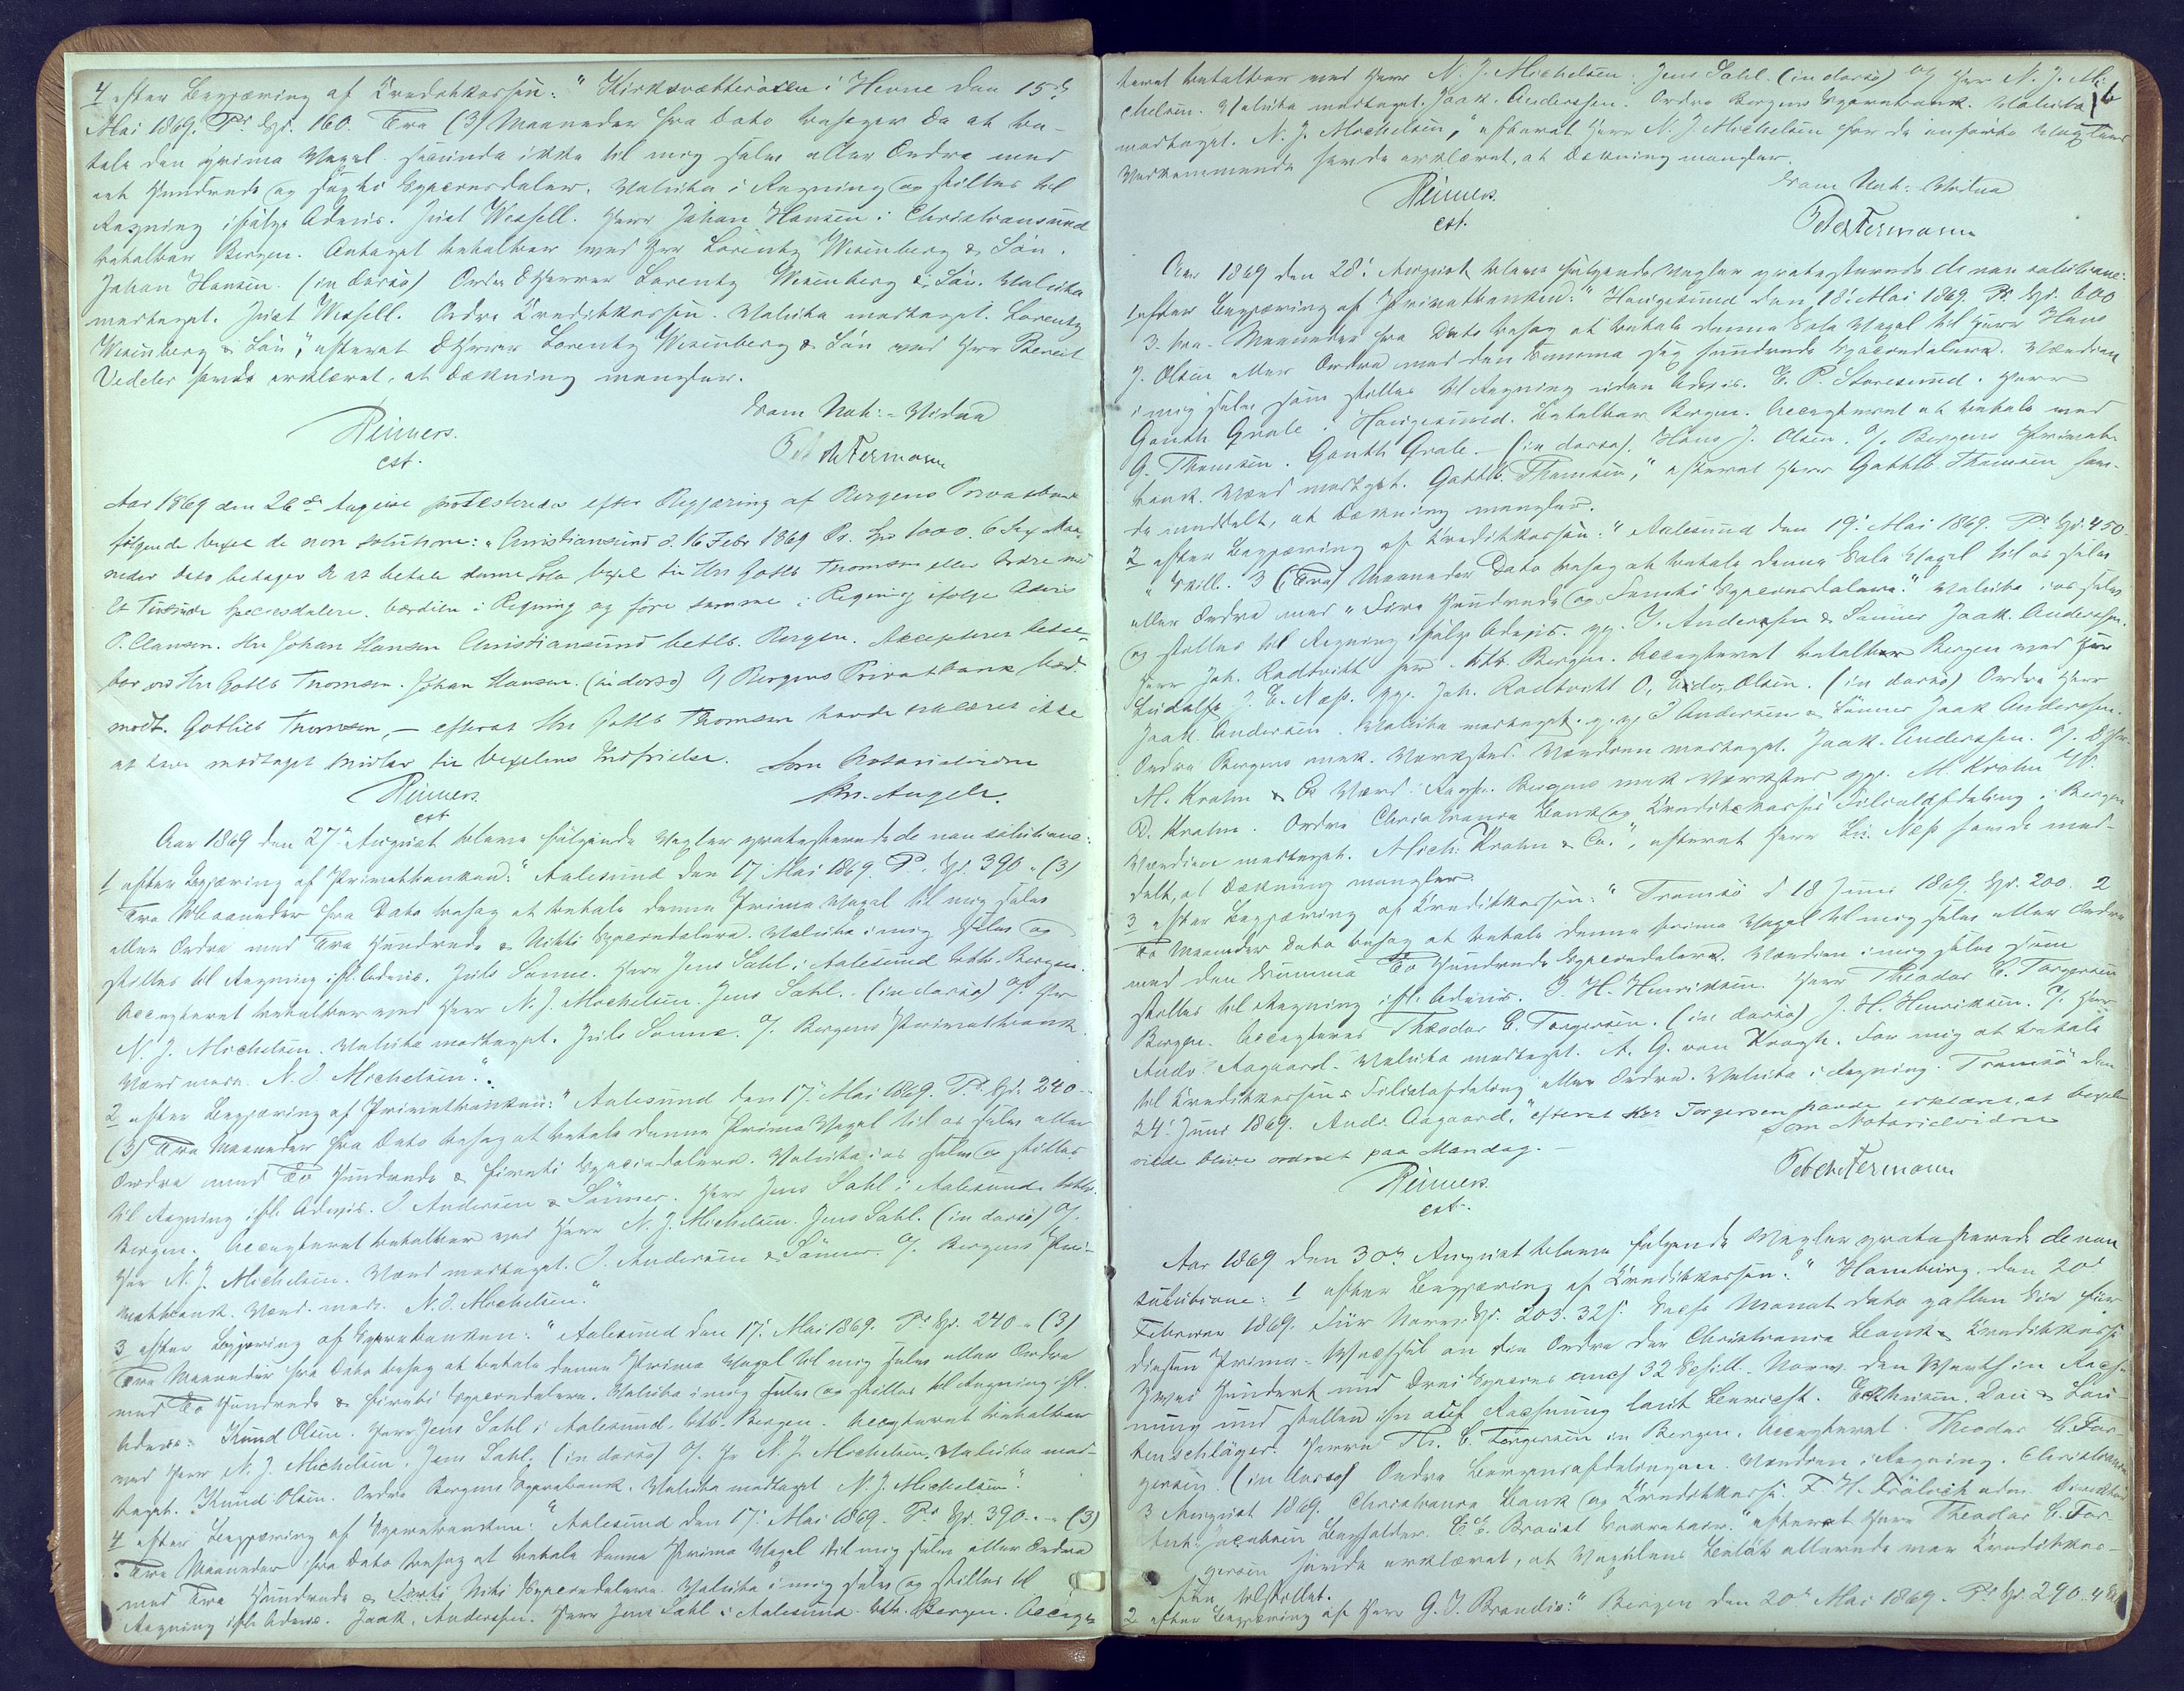 4 efter Begjæring af Kreditkassen: "Kirksætterøren i Hevne den 15de
Mai 1869. Pr Spd. 160. Tre (3) Maaneder fra dato behager De at be-
tale den prima Vexel secunda ikke til mig selv eller Ordre med
eet Hundrede og sexti Speciesdaler. Valuta i Regning og stilles til
Regning ifølge Advis. Just Wessell. Herr Johan Hansen i Christiansund
betalbar Bergen. Antaget betalbar ved Hrr Lorentz Wesenberg & Søn.
Johan Hansen. (in dorso) Ordre DHerrer Lorentz Wesenberg & Søn. Valuta
modtaget. Just Wessell. Ordre Kreditkassen. Valuta modtaget. Lorentz
Wesenberg & Søn", efterat DHerrer Lorentz Wesenberg & Søn ved Hrr Berent
Vedeler havde erklæret, at Dækning mangler.
Som Not:-Vidne
Reimers.
est.
Aar 1869 den 26de August protesteredes efter Begjæring af Bergens Privatbank
følgende vexel de non solutione: "Christiansund d. 16 Febr 1869 Pr. Spd 1000. 6 Sex Maa-
neder dato behager De at betale denne Sola vexel til Hrr Gottlb Thomsen eller Ordre med
Et Tusinde Speciesdalere. Værdien i Regning og føre samme i Regning ifølge Advis
P. Clausen. Hrr Johan Hansen Christiansund betlb. Bergen. Accepteret betal-
bar ved Hrr Gottlb Thomsen. Johan Hansen. (in dorso) O/ Bergens Privatbank, Værd.
modt. Gotlieb Thomsen, — efterat Hrr Gottlb Thomsen havde erklæret ikke
at have modtaget Midler til Vexelens Indfrielse. Som Notarialvidne
Reimers.
est
Aar 1869 den 27de August bleve følgende Vexler protesterede de non solutione:
1 efter Begjæring af Privatbanken: "Aalesund den 17 Mai 1869. Pr. Spd. 390 " (3)
Tre Maaneder fra Dato behag at betale denne Prima Vexel til mig selv
eller Ordre med Tre Hundrede & Nitti Speciesdalere. Valuta i mig selv og
stilles til Regning ifl. Advis. Juls Sanne. Herr Jens Dahl i Aalesund btlb. Bergen.
Accepteret betalbar ved Herr N. J. Michelsen. Jens Dahl. (in dorso) O/ Hr
N. J. Michelsen. Valuta modtaget. Juls Sanne. O/ Bergens Privatbank.
Værd modt. N. J. Michelsen."
2 efter Begjæring af Privatbanken: "Aalesund den 17. Mai 1869. Pr. Spd. 240-
(3) Tre Maaneder fra Dato behag at betale denne Prima Vexel til os selv eller
Ordre med To Hundrede & Firoti Speciesdalere. Valuta i os selv og stilles
til Regning ifl. Advis. J. Andersen & Sønner. Herr Jens Dahl i Aalesund btlb.
Bergen. Accepteret betalbar ved Herr N. J. Michelsen. Jens Dahl. (in dorso) O/.
Hrr N. J. Michelsen. Værd modtaget. J. Andersen & Sønner. O/. Bergens Pri-
vatbank. Værd. modt. N. J. Michelsen."
3 efter Begjæring af Sparebanken: "Aalesund den 17. Mai 1869. Pr Spd. 240 " (3)
Tre Maaneder fra Dato behag at betale denne Prima Vexel til mig selv eller Ordre
med To Hundrede & Firoti Speciesdalere. Valuta i mig selv og stilles til Regning ifl.
Advis. Knud Olsen. Herr Jens Dahl i Aalesund. btlb. Bergen. Accepteret betalbar
ved Herr N. J. Michelsen. Jens Dahl. (in dorso) O/. Hr N. J. Michelsen. Valuta mod-
taget. Knud Olsen. Ordre Bergens Sparebank. Valuta modtaget N. J. Michelsen."
4 efter Begjæring af Sparebanken: "Aalesund den 17. Mai 1869. Pr Spd. 390. " (3)
Tre Maaneder fra Dato behag at betale denne Prima Vexel til mig selv eller Ordre
med Tre Hundrede & Nitti Speciesdalere. Valuta i mig selv og stilles til
Regning ifl. Advis. Jaak. Anderssen. Herr Jens Dahl i Aalesund. btlb. Bergen. Accep-
teret betalbar ved Herr N. J. Michelsen. Jens Dahl. (in dorso) O/ Hrr N. J. Mi-
6
chelsen. Valuta modtaget. Jaak. Anderssen. Ordre Bergens Sparebank. Valuta
modtaget. N. J. Michelsen," efterat Herr N. J. Michelsen for de anførte Vexlers
Vedkommende havde erklæret, at Dækning mangler.
Som Not:-Vidne
Reimers.
est.
Aar 1869 den 28de August bleve følgende Vexler protesterede de non solutione:
1 efter Begjæring af Privatbanken: "Haugesund den 18. Mai 1869. Pr. Spd. 600
3. tre. Maaneder fra Dato behag at betale denne Sola Vexel til Herr Hans
J. Olsen eller Ordre med den Summa sex hundrede Speciesdalere. Værdien
i mig selv som stilles til Regning uden Advis. E. P. Storesund. Herr
Gonth Grole. Haugesund. betalbar Bergen. Accepteret at betale ved
G. Thomsen. Gonth Grole. (in dorso). Hans J. Olsen. O/. Bergens Privat-
bank. Værd modtaget. Gottlb. Thomsen," efterat Herr Gottlb Thomsen hav-
de meddelt, at Dækning mangler.
2 efter Begjæring af Kreditkassen: "Aalesund den 19. Mai 1869. Pr Spd. 450
" Skill. 3 (Tre) Maaneder Dato behag at betale denne Sola Vexel til os selv
eller Ordre med "Fire Hundrede og Femti Speciesdalere." Valuta i os selv
og stilles til Regning ifølge Advis. pp. J. Anderssen & Sønner Jaak. Anderssen.
Herr Joh. Radtvitt her. btb. Bergen. Accepteret betalbar Bergen med Herr
Ludolf J. E. Næs. pp. Joh. Radtvitt O, Olsen. (in dorso) Ordre Herr
Jaak. Andersen. Valuta modtaget. p.p. J Andersen & Sønner Jaak Anderssen.
Ordre Bergens mek. Værksted. Værdien modtaget. Jaak. Anderssen. O/. DHrr.
M. Krohn & Co Værd. i Regn. Bergens mek Værksted pp. M. Krohn
D. Krohn. Ordre Christiania Bank og Kreditkasses Filialafdeling i Bergen
Værdien modtaget. Mich. Krohn & Co.", efterat Herr Lu. Næs havde med-
delt, at Dækning mangler.
3 efter Begjæring af Kreditkassen: "Tromsø d 18 Juni 1869. Spd. 200. 2
To Maaneder Dato behag at betale denne prima Vexel til mig selv eller Ordre
med den Summa To Hundrede Speciesdalere. Værdien i mig selv som
stilles til Regning ifl. Advis. J. H. Henriksen. Herr Theodor C. Torgersen
Bergen. Accepteres Theodor C. Torgersen. (in dorso) J. H. Henriksen. O/. Herr
Andr. Aagaard. Valuta modtaget. A. G. von Krogh. For mig at betale
til Kreditkassens Filialafdeling eller Ordre. Valuta i Regning. Tromsø den
24. Juni 1869. Andr Aagaard," efterat Herr Torgersen havde erklæret, at vexelen
vilde blive ordnet paa Mandag. —
Som Notarialvidne
Reimers.
est.
Aar 1869 den 30te August bleve følgende Vexler protesterede de non
solutione: 1 efter Begjæring af Kreditkassen: "Hamburg. den 20d
Februar 1869. Für Norw. Sp. 203. 32 s. Sechs Monat dato zahlen Sie für
diesen Prima-Wechsel an die Ordre der Christiania Bank & Kreditkasse
Zwei Hundert und Drei Species auch 32 Schill. Norw. den Werth in Rech-
nung und stellen ihn auf Rechnung laut Bericht. Eckhusen. Dau & Lau-
tenschläger. Herrn Th. C. Torgersen in Bergen. Accepteret. Theodor C. Tor-
gersen. (in dorso) Ordre Bergensafdelingen. Værdien i Regning. Christiania
3 August 1869. Christiania Bank og Kreditkasse. F. H. Frölich adm. Direktør
Ant. Jacobsen Bogholder. C. E. Brovst" efterat Herr Theodor C. Tor-
gersen havde erklæret, at Vexelens Beløb allerede var Kreditkas-
sen tilstillet.
2 efter Begjæring af Herr G. J. Brandis: "Bergen den 20de Mai 1869. Pr Spd. 290.